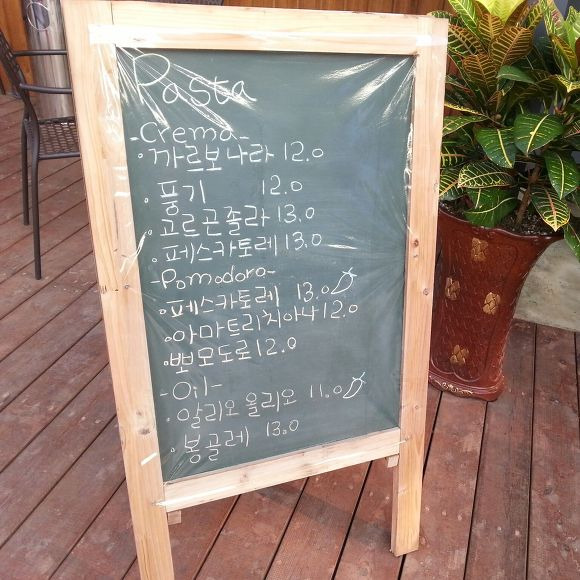 Pasta
-Crema-
·까르보나라 12.0
·풍기 12.0
·고르곤졸라 13.0
·페스카토레 13.0
-Pomodoro-
·페스카토레 13.0
·아마트리치아나 12.0
·뽀모도로 12.0
-Oil-
·알리오올리오 11.0
·봉골레 13.0